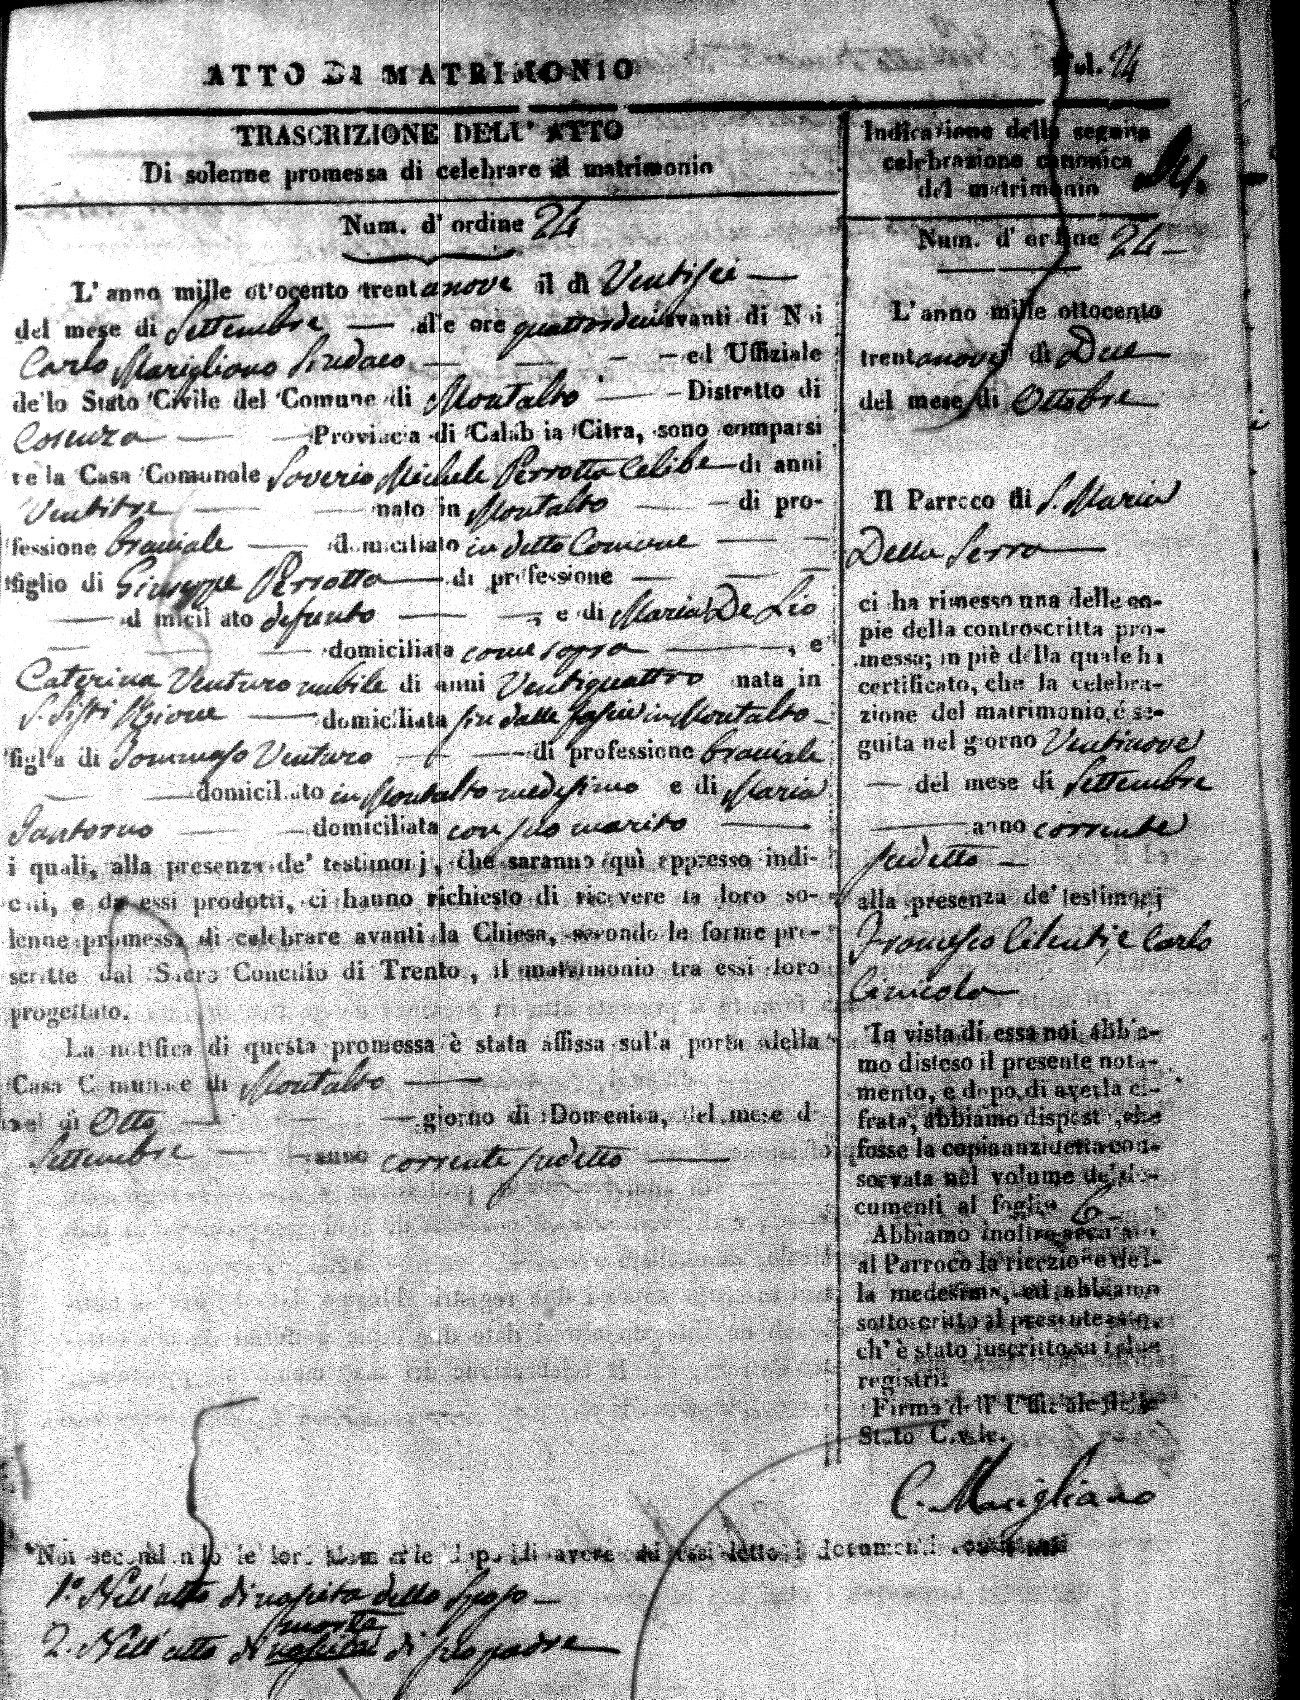 ATTO DI MATRIMONIO
Vol. 24
TRASCRIZIONE DELL' ATTO
Di solenne promessa di celebrare il matrimonio
Num. d' ordine 24
L' anno mille ottocento trentanove il dì Ventisei
del mese di Settembre alle ore quattordici avanti di Noi
Carlo Marigliano Sindaco ed Uffiziale
dello Stato Civile del Comune di Montalto Distretto di
Cosenza Provincia di Calabria Citra, sono comparsi
nella Casa Comunale Saverio Michele Perrotta Celibe di anni
Ventitre nato in Montalto di pro-
fessione bracciale domiciliato in detto Comune
figlio di Giuseppe Perrotta di professione
domiciliato defunto , e di Maria De Lio
domiciliata come sopra , e
Caterina Venturo nubile di anni Ventiquattro nata in
S. Sisti domiciliata in Montalto
figlia di Tommaso Venturo di professione bracciale
domiciliato in Montalto medesimo e di Maria
Santoruo domiciliata con suo marito
i quali, alla presenza de' testimonj, che saranno quì appresso indi-
cati, e da essi prodotti, ci hanno richiesto di ricevere la loro so-
lenne promessa di celebrare avanti la Chiesa, secondo le forme pre-
scritte dal Sacro Concilio di Trento, il matrimonio tra essi loro
progettato.
La notifica di questa promessa è stata affissa sulla porta della
Casa Comunale di Montalto
nel dì Otto giorno di Domenica, del mese di
Settembre anno corrente sudetto
*Noi secondando le loro domande dopo di avere ad essi letto i documenti consistenti
1.° Nell' atto di nascita dello Sposo
morte
2. Nell' atto di nascita di suo padre
Indicazione della seguita
celebrazione canonica
del matrimonio
24.
Num. d' ordine 24
L' anno mille ottocento
trentanove dì Due
del mese di Ottobre
Il Parroco di S. Maria
Della Serra
ci ha rimesso una delle co-
pie della controscritta pro-
messa; in piè della quale ha
certificato, che la celebra-
zione del matrimonio è se-
guita nel giorno Ventinove
del mese di Settembre
anno corrente
sudetto
alla presenza de' testimonj
Francesco Cilenti, e Carlo
In vista di essa noi abbia-
mo disteso il presente nota-
mento, e dopo di averla ci-
frata, abbiamo disposto, che
fosse la copia anzidetta con-
servata nel volume de' do-
cumenti al foglio 6
Abbiamo inoltre accusato
al Parroco la ricezione del-
la medesima, ed abbiamo
sottoscritto il presente atto,
ch' è stato inscritto su i due
registri.
Firma dell' Uffiziale dello
Stato Civile.
C. Marigliano